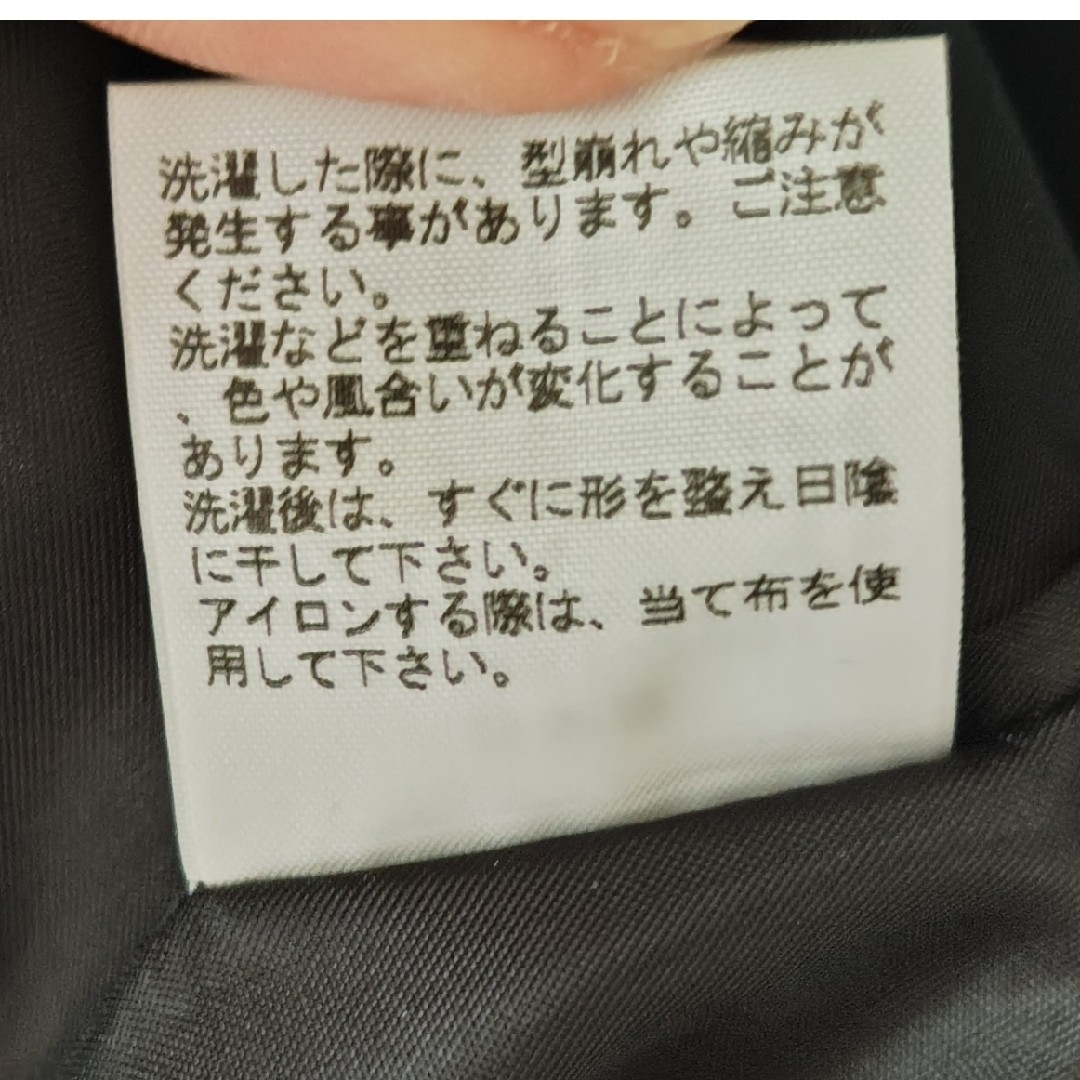 洗濯した際に、型崩れや縮みが
発生する事があります。ご注意
ください。
洗濯などを重ねることによって
、色や風合いが変化することが
あります。
洗濯後は、すぐに形を整え日陰
に干して下さい。
アイロンする際は、当て布を使
用して下さい。